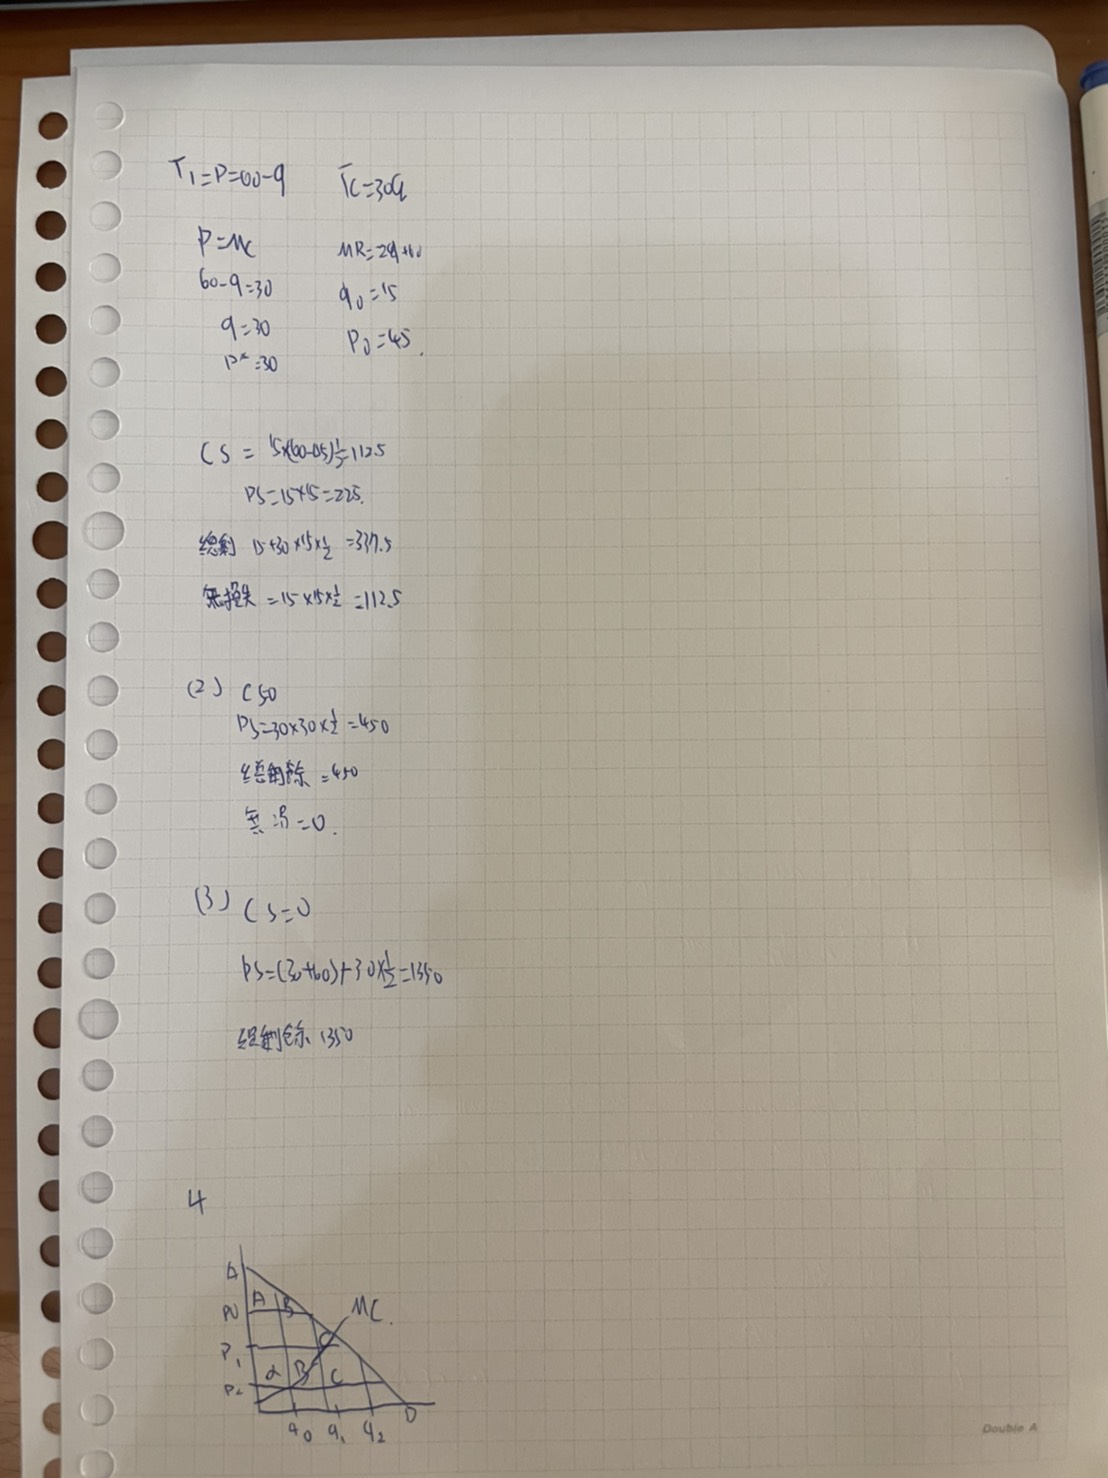 T1=P=60-q TC=30q
P=MC MR=2q+60
60-q=30 q0=15
q=30 P0=45.
P*=30
CS = 15×(60-45)½=112.5
PS=15×15=225.
總剩 15+30×15×½=337.5
無損失=15×15×½=112.5
(2) CS0
PS=30×30×½=450
總剩餘=450
無 =0.
(3) CS=0
PS=(30+60)+30×½=1350
總剩餘 1350
4
A
P0 A B MC.
P1 C
α B C
P2
q0 q1 q2 D
Double A